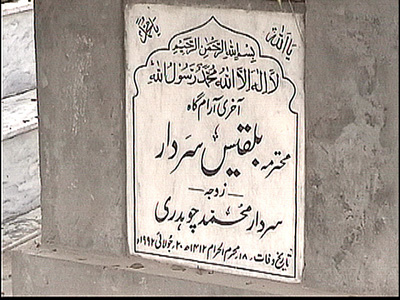 یا اللہ یا محمد
بسم اللہ الرحمن الرحیم
لا الہ الا اللہ محمد رسول اللہ
آخری آرام گاہ
محترمہ بلقیس سردار
زوجہ
سردار محمد چوہدری
تاریخ وفات ۔ ۱۸ محرم الحرام ۱۴۱۲ھ ۔ ۲۰ جولائی ۱۹۹۲ء